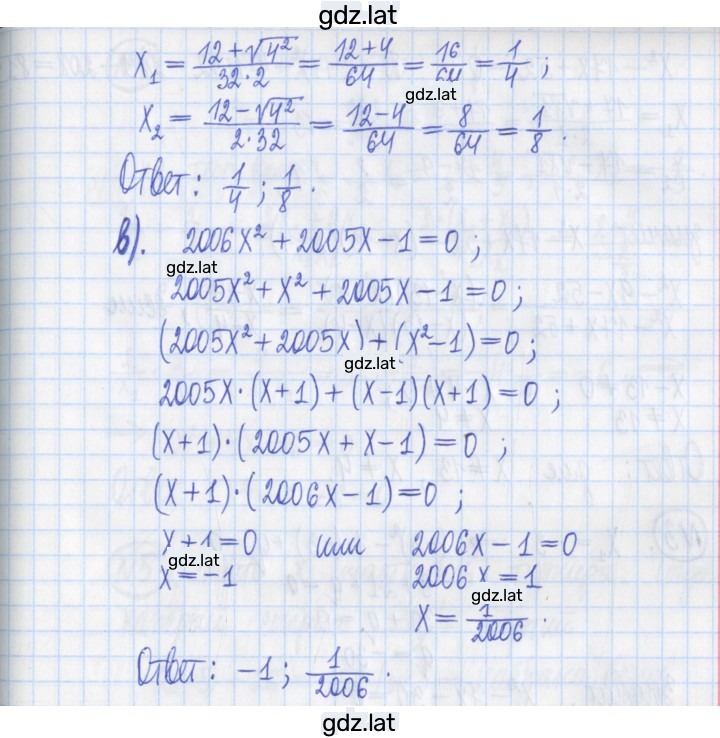 gdz.lat
X₁ = (12+√4²)/(32·2) = (12+4)/64 = 16/64 = 1/4 ;
gdz.lat
X₂ = (12-√4²)/(2·32) = (12-4)/64 = 8/64 = 1/8 .
Ответ: 1/4 ; 1/8 .
в). 2006X² + 2005X - 1 = 0 ;
gdz.lat
2005X² + X² + 2005X - 1 = 0 ;
(2005X² + 2005X) + (X² - 1) = 0 ;
gdz.lat
2005X·(X+1) + (X-1)(X+1) = 0 ;
(X+1)·(2005X + X - 1) = 0 ;
(X+1)·(2006X - 1) = 0 ;
X+1 = 0 или 2006X - 1 = 0
gdz.lat
X = -1 2006X = 1
gdz.lat
X = 1/2006 .
Ответ: -1 ; 1/2006 .
gdz.lat